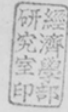 經濟學部
研究室印